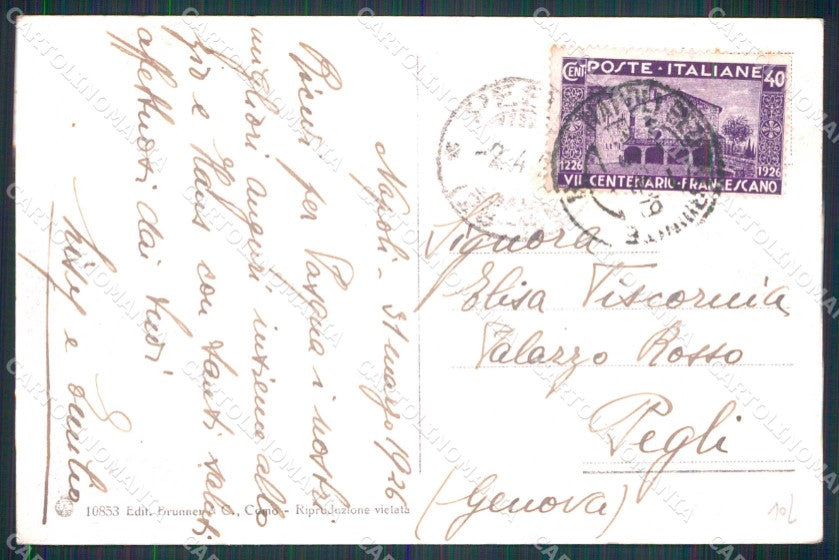 CENT POSTE · ITALIANE 40
1226 1926
VII CENTENARIO · FRANCESCANO
Napoli - 31 marzo 1926
Ricevi per Pasqua i nostri
migliori auguri insieme allo
Zio e Hans con tanti saluti
affettuosi dai tuoi
e Emilio
Signora
Elisa Viscornia
Palazzo Rosso
Pegli
(Genova)
10L
10853 Edit. Brunner & C., Como - Riproduzione vietata
CARTOLINOMANIA